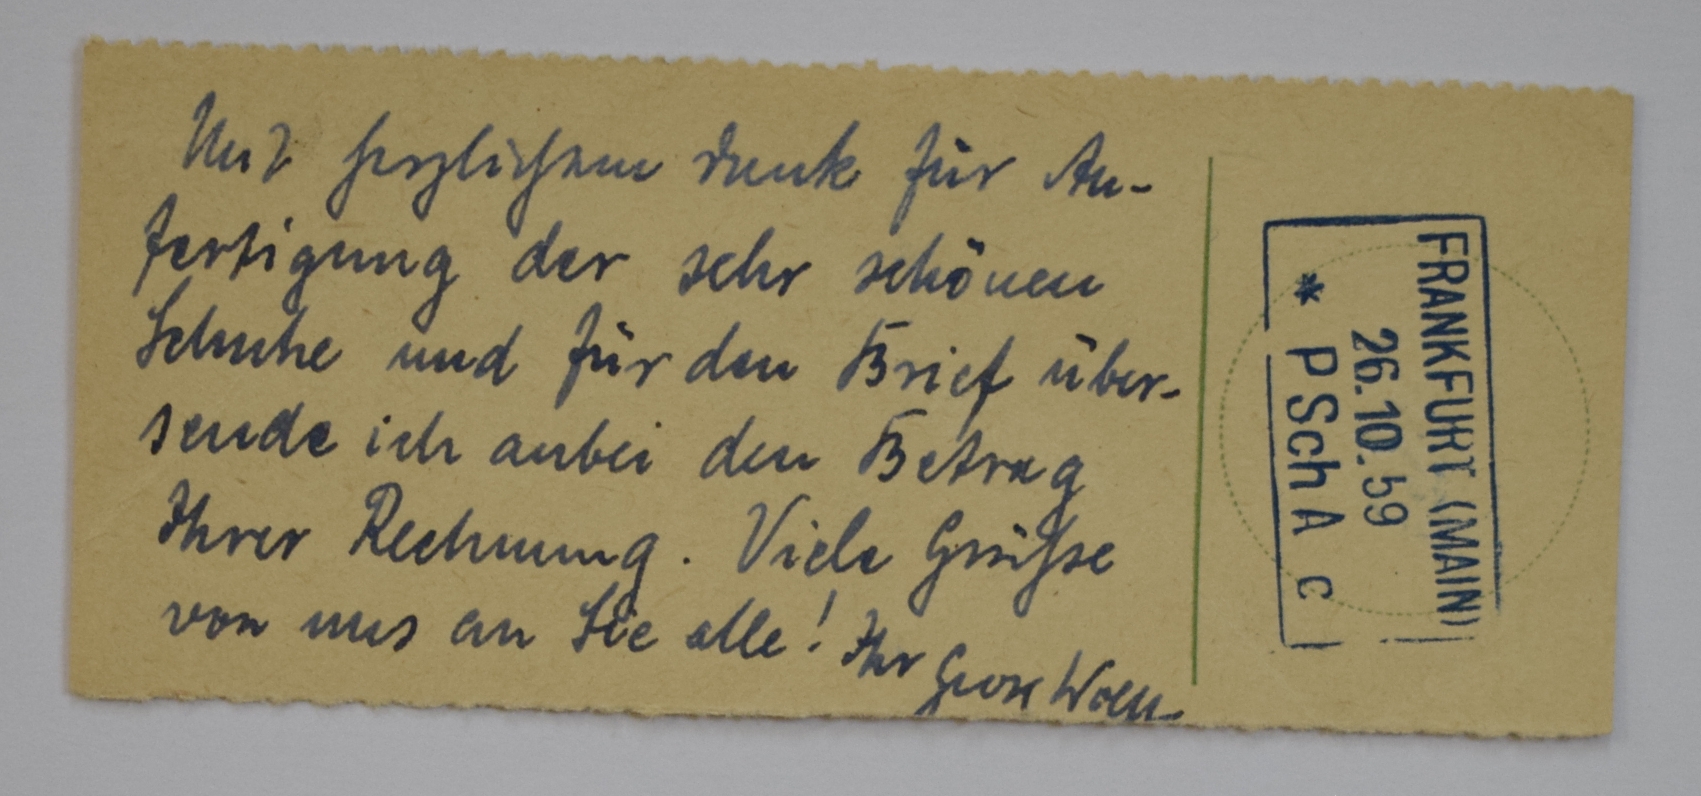 Mit herzlichem Dank für An-
fertigung der sehr schönen
Schuhe und für den Brief über-
sende ich anbei den Betrag
Ihrer Rechnung. Viele Grüße
von uns an Sie alle! Ihr
FRANKFURT (MAIN)
26.10.59
* PSchA c